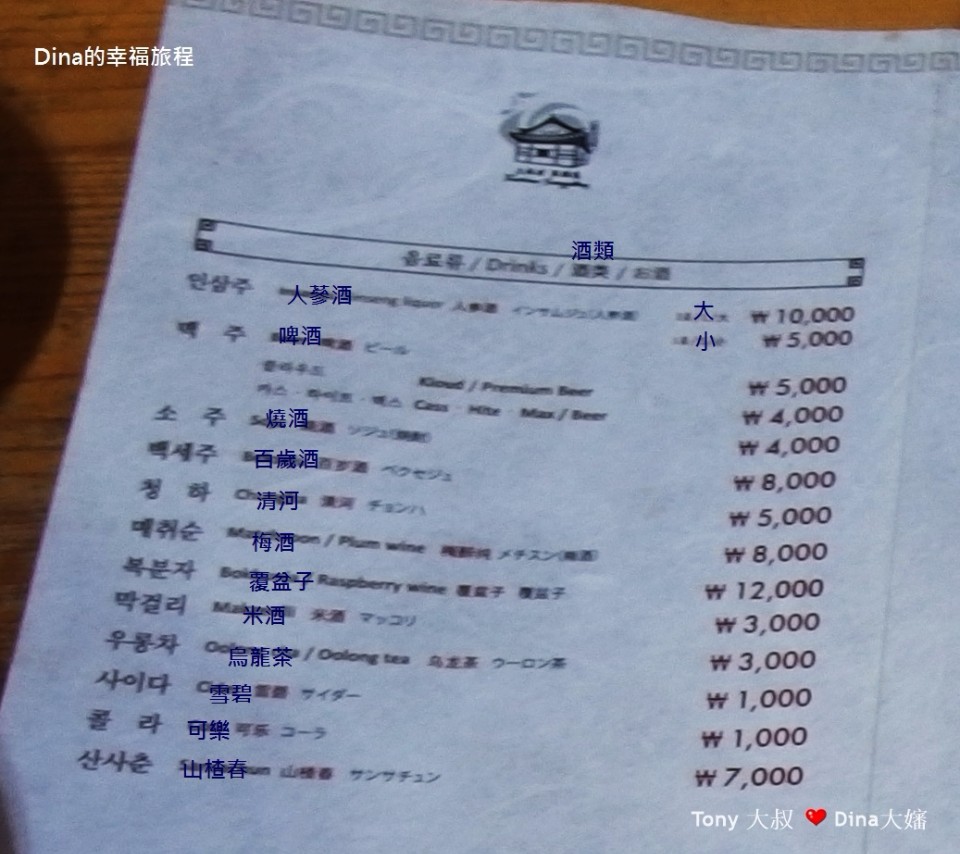 Dina的幸福旅程
酒類
음료류 / Drinks / 酒类 / お酒
인삼주 人蔘酒 Ginseng liquor 人参酒 インサムジュ(人参酒) 大 ₩ 10,000
小 ₩ 5,000
맥 주 啤酒 ビール
클라우드 Kloud / Premium Beer ₩ 5,000
카스 · 하이트 · 맥스 Cass · Hite · Max / Beer ₩ 4,000
소 주 燒酒 ソジュ(焼酎) ₩ 4,000
백세주 百歲酒 百岁酒 ベクセジュ ₩ 8,000
청 하 清河 清河 チョンハ ₩ 5,000
매취순 梅酒 / Plum wine 梅醉纯 メチスン(梅酒) ₩ 8,000
복분자 覆盆子 Raspberry wine 覆盆子 覆盆子 ₩ 12,000
막걸리 米酒 米酒 マッコリ ₩ 3,000
우롱차 烏龍茶 / Oolong tea 乌龙茶 ウーロン茶 ₩ 3,000
사이다 雪碧 雪碧 サイダー ₩ 1,000
콜 라 可樂 可乐 コーラ ₩ 1,000
산사춘 山楂春 山楂春 サンサチュン ₩ 7,000
Tony 大叔 ❤ Dina大嬸